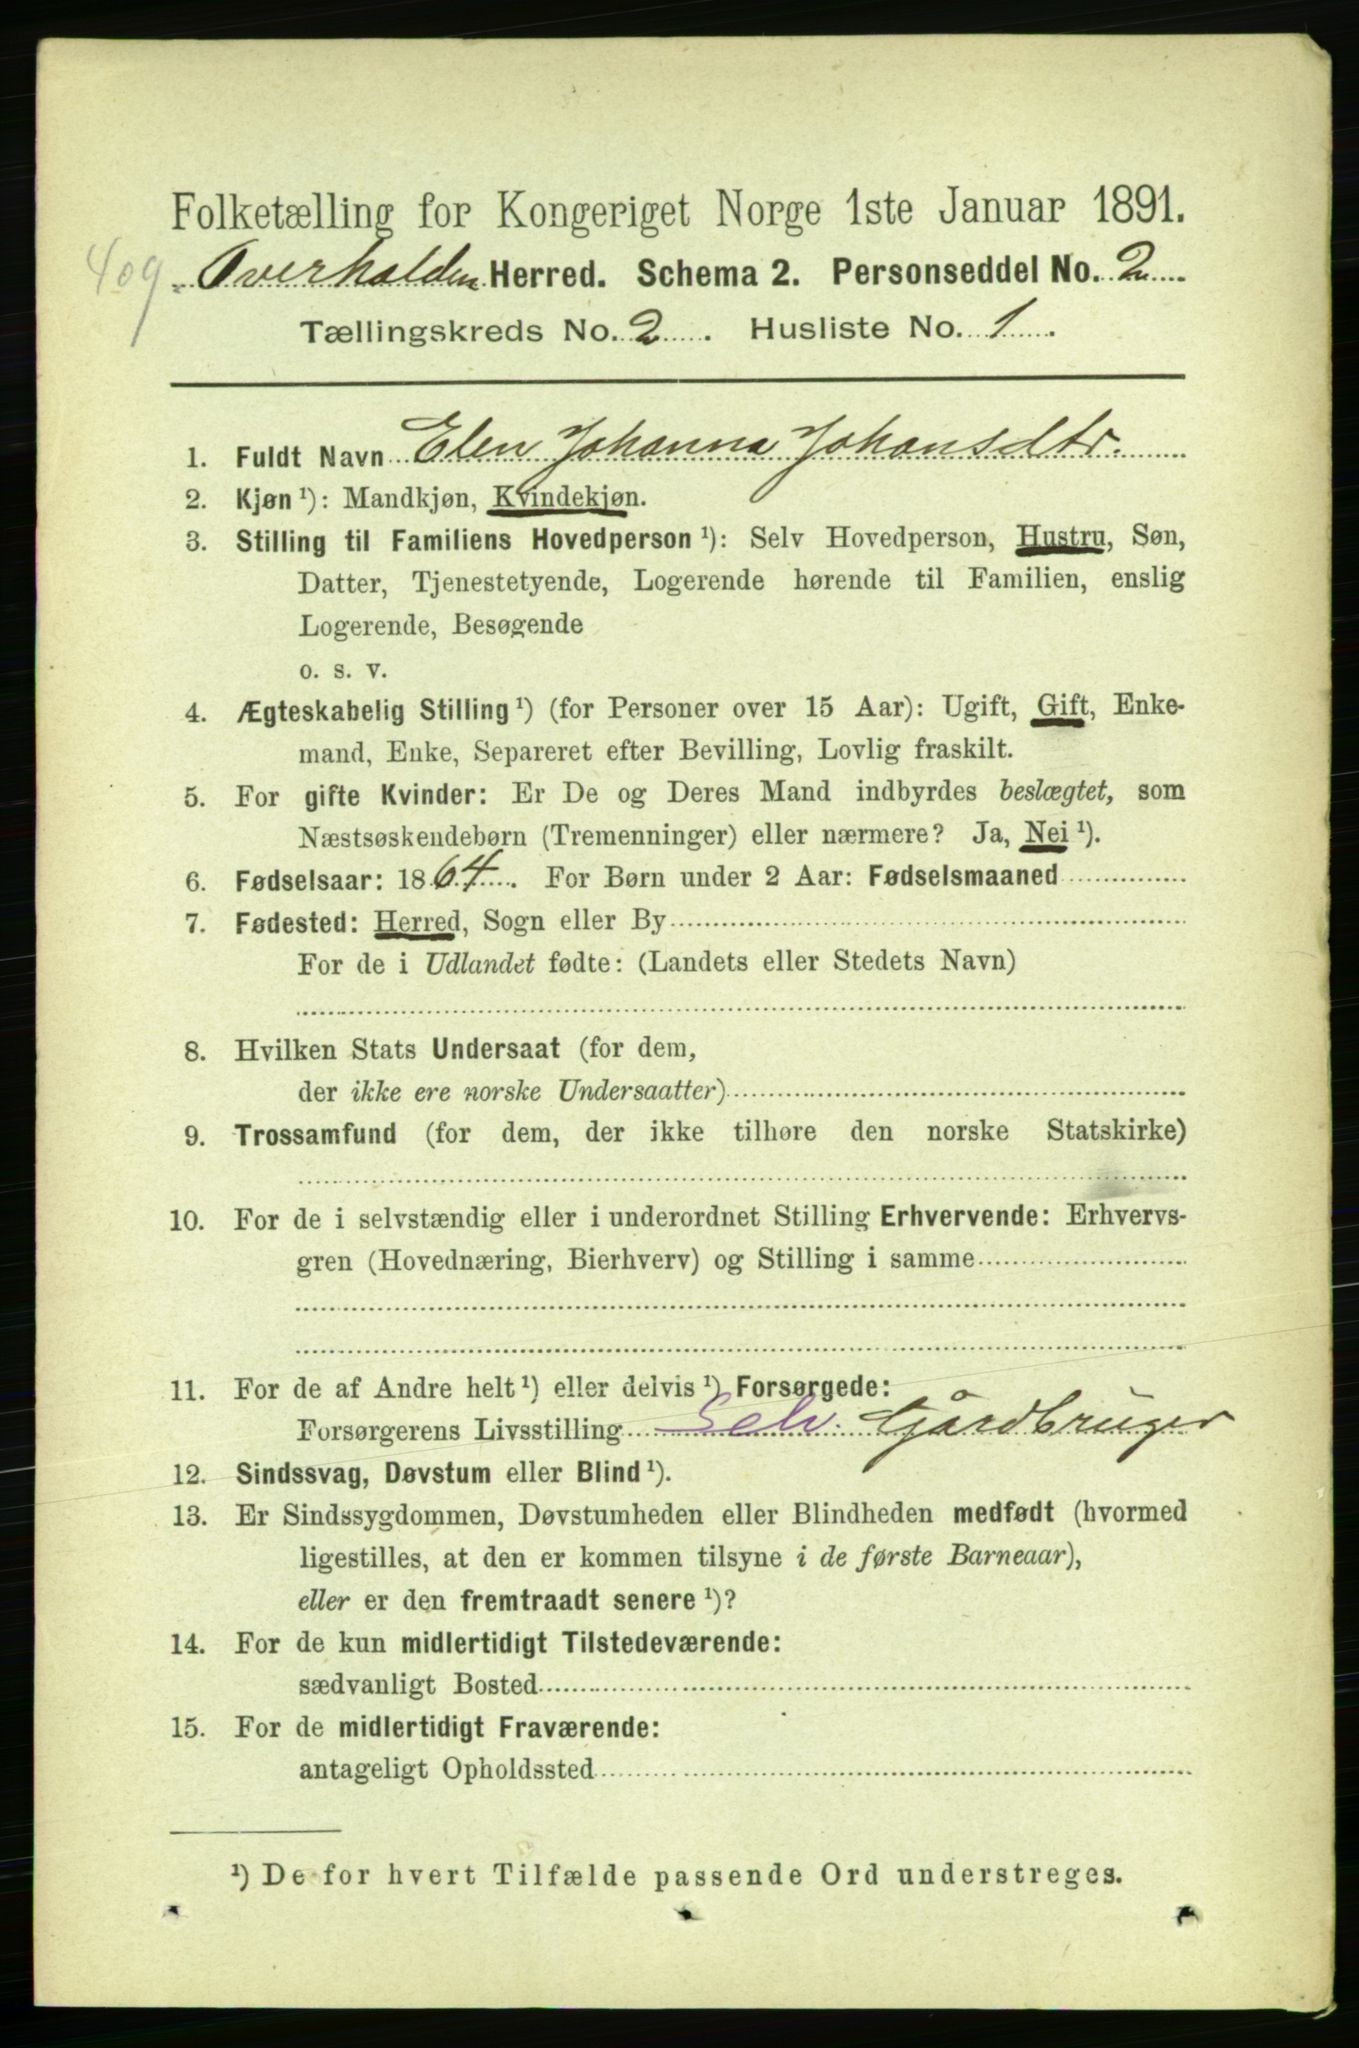 Folketælling for Kongeriget Norge 1ste Januar 1891.
409
Overhalden Herred. Schema 2. Personseddel No. 2
Tællingskreds No. 2. Husliste No. 1.
1. Fuldt Navn Elen Johanna Johansdtr.
2. Kjøn ¹): Mandkjøn, Kvindekjøn.
3. Stilling til Familiens Hovedperson ¹): Selv Hovedperson, Hustru, Søn,
Datter, Tjenestetyende, Logerende hørende til Familien, enslig
Logerende, Besøgende
o. s. v.
4. Ægteskabelig Stilling ¹) (for Personer over 15 Aar): Ugift, Gift, Enke-
mand, Enke, Separeret efter Bevilling, Lovlig fraskilt.
5. For gifte Kvinder: Er De og Deres Mand indbyrdes beslægtet, som
Næstsøskendebørn (Tremenninger) eller nærmere? Ja, Nei ¹).
6. Fødselsaar: 1864. For Børn under 2 Aar: Fødselsmaaned
7. Fødested: Herred, Sogn eller By
For de i Udlandet fødte: (Landets eller Stedets Navn)
8. Hvilken Stats Undersaat (for dem,
der ikke ere norske Undersaatter)
9. Trossamfund (for dem, der ikke tilhøre den norske Statskirke)
10. For de i selvstændig eller i underordnet Stilling Erhvervende: Erhvervs-
gren (Hovednæring, Bierhverv) og Stilling i samme
11. For de af Andre helt ¹) eller delvis ¹) Forsørgede:
Forsørgerens Livsstilling Selv. Gårdbruger
12. Sindssvag, Døvstum eller Blind ¹).
13. Er Sindssygdommen, Døvstumheden eller Blindheden medfødt (hvormed
ligestilles, at den er kommen tilsyne i de første Barneaar),
eller er den fremtraadt senere ¹)?
14. For de kun midlertidigt Tilstedeværende:
sædvanligt Bosted
15. For de midlertidigt Fraværende:
antageligt Opholdssted
¹) De for hvert Tilfælde passende Ord understreges.